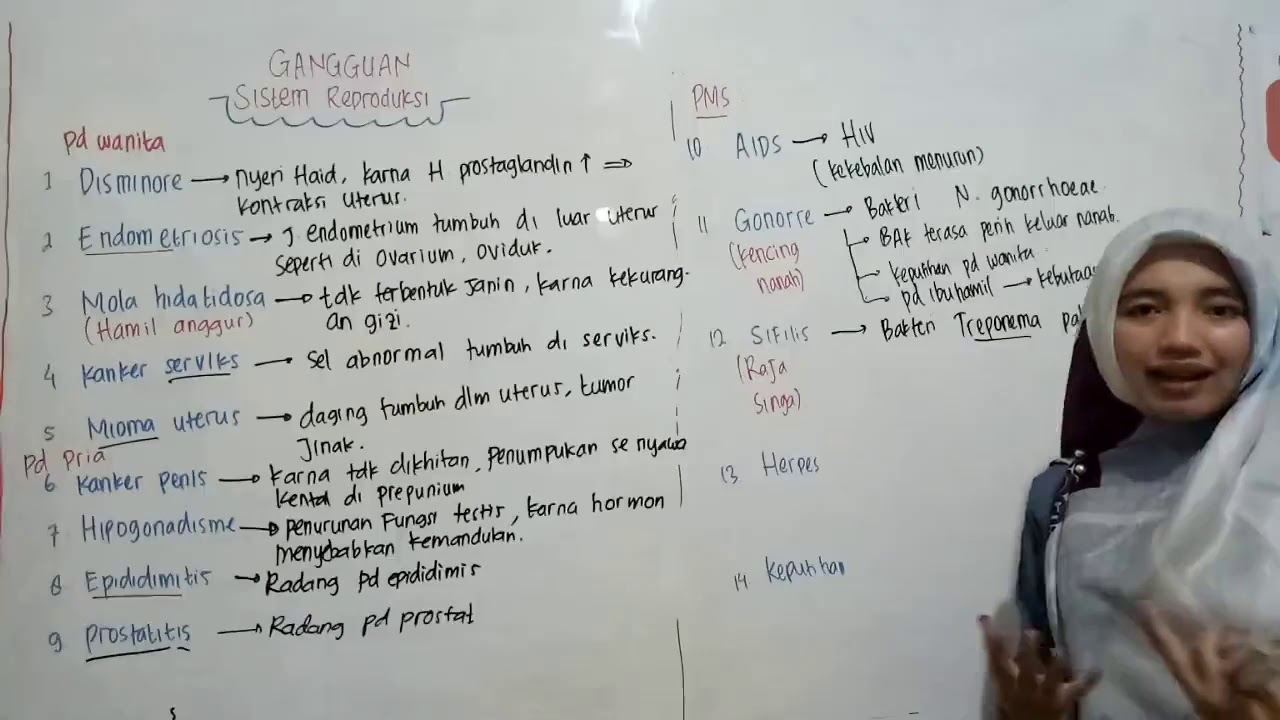 GANGGUAN
Sistem Reproduksi
pd wanita
1 Disminore → nyeri Haid, karna H prostaglandin ↑ ⇒
kontraksi uterus.
2 Endometriosis → J. endometrium tumbuh di luar uterur
seperti di ovarium, oviduk.
3 Mola hidatidosa → tdk terbentuk Janin, karna kekurang-
(Hamil anggur) an gizi.
4 Kanker serviks → sel abnormal tumbuh di serviks.
5 Mioma uterus → daging tumbuh dlm uterus, tumor
Jinak.
pd pria
6 Kanker penis → karna tdk dikhitan, penumpukan senyawa
kental di prepunium
7 Hipogonadisme → penurunan Fungsi testis, karna hormon
menyebabkan kemandulan.
8 Epididimitis → Radang pd epididimis
9 prostatitis → Radang pd prostat
PMS
10 AIDS → HIV
(kekebalan menurun)
11 Gonorre → Bakteri N. gonorrhoeae
(kencing nanah) → BAK terasa perih keluar nanah.
→ keputihan pd wanita
→ pd ibu hamil → kebutaa
12 Sifilis → Bakteri Treponema pa
(Raja
Singa)
13 Herpes
14 keputihan